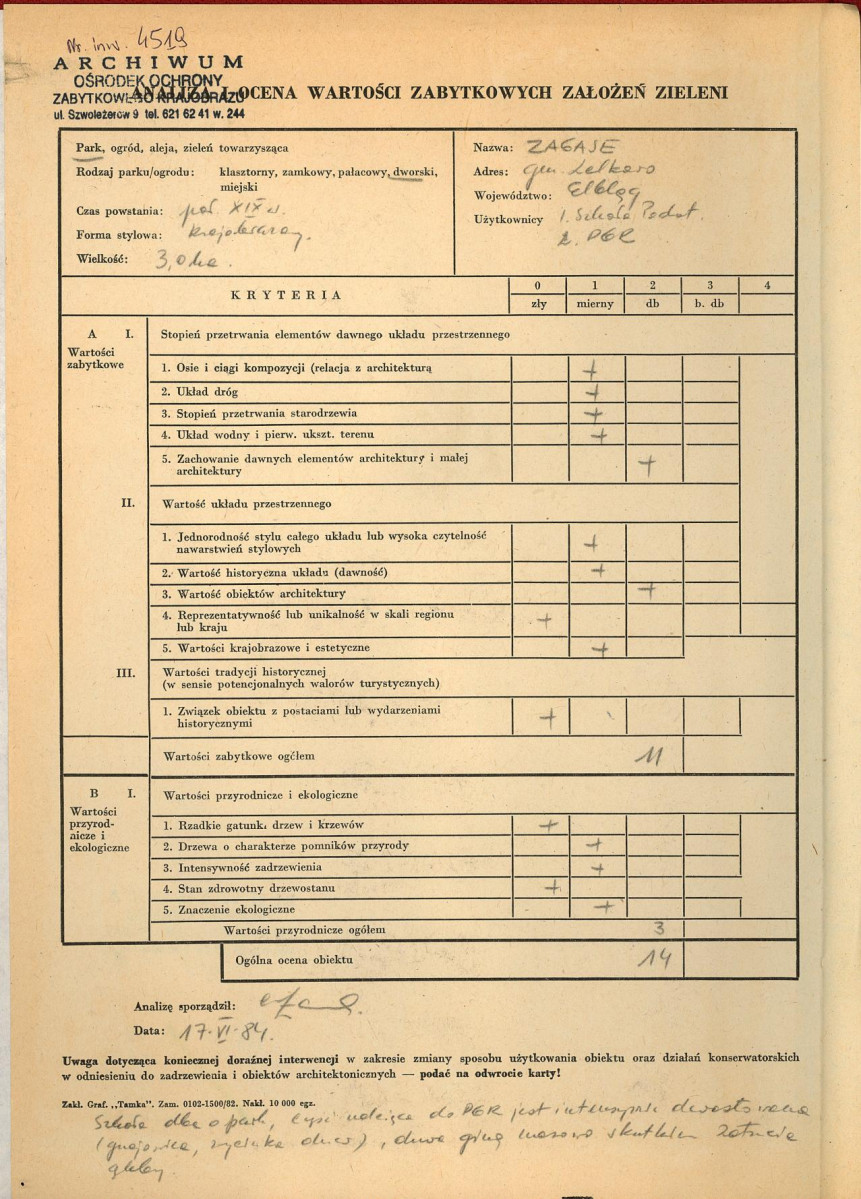 Nr. inw. 4519
ARCHIWUM
OŚRODEK OCHRONY
ZABYTKOWEGO KRAJOBRAZU
ul. Szwoleżerów 9 tel. 621 62 41 w. 244
ANALIZA I OCENA WARTOŚCI ZABYTKOWYCH ZAŁOŻEŃ ZIELENI
Park, ogród, aleja, zieleń towarzysząca
Rodzaj parku/ogrodu: klasztorny, zamkowy, pałacowy, dworski,
miejski
Czas powstania: poł. XIX w.
Forma stylowa: krajobrazowy.
Wielkość: 3,0 ha.
Nazwa: ZAGAJE
Adres: gm. Zelkowo
Województwo: Elbląg
Użytkownicy 1. Szkoła Podst.
2. PGR
KRYTERIA
0 1 2 3 4
zły mierny db b. db
A I. Stopień przetrwania elementów dawnego układu przestrzennego
Wartości
zabytkowe
1. Osie i ciągi kompozycji (relacja z architekturą +
2. Układ dróg +
3. Stopień przetrwania starodrzewia +
4. Układ wodny i pierw. ukszt. terenu +
5. Zachowanie dawnych elementów architektury i małej
architektury +
II. Wartość układu przestrzennego
1. Jednorodność stylu całego układu lub wysoka czytelność
nawarstwień stylowych +
2. Wartość historyczna układu (dawność) +
3. Wartość obiektów architektury +
4. Reprezentatywność lub unikalność w skali regionu
lub kraju +
5. Wartości krajobrazowe i estetyczne +
III. Wartości tradycji historycznej
(w sensie potencjonalnych walorów turystycznych)
1. Związek obiektu z postaciami lub wydarzeniami
historycznymi +
Wartości zabytkowe ogółem 11
B I. Wartości przyrodnicze i ekologiczne
Wartości
przyrod-
nicze i
ekologiczne
1. Rzadkie gatunki drzew i krzewów +
2. Drzewa o charakterze pomników przyrody +
3. Intensywność zadrzewienia +
4. Stan zdrowotny drzewostanu +
5. Znaczenie ekologiczne +
Wartości przyrodnicze ogółem 3
Ogólna ocena obiektu 14
Analizę sporządził:
Data: 17.VI.84.
Uwaga dotycząca koniecznej doraźnej interwencji w zakresie zmiany sposobu użytkowania obiektu oraz działań konserwatorskich
w odniesieniu do zadrzewienia i obiektów architektonicznych — podać na odwrocie karty!
Zakł. Graf. „Tamka". Zam. 0102-1500/82. Nakł. 10 000 egz.
Szkoła dba o park, część należąca do PGR jest intensywnie dewastowana
(gnojowica, wycinka drzew), drzewa giną masowo skutkiem zatrucia
gleby.